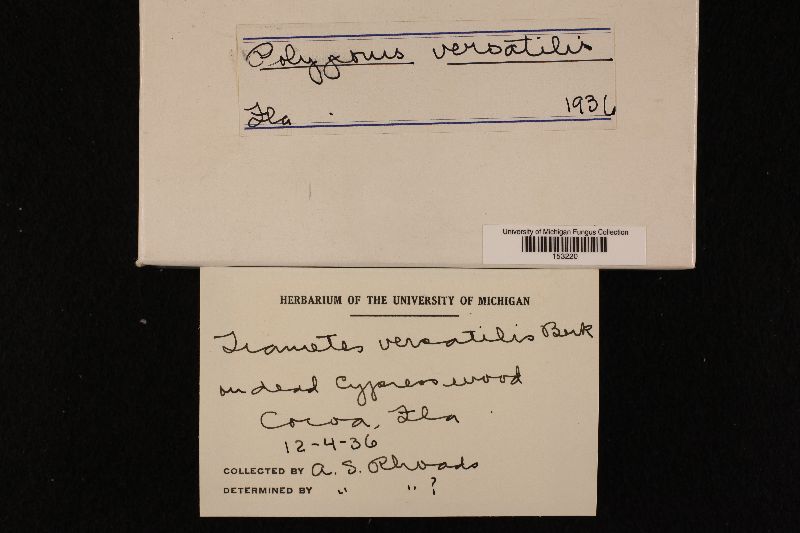 Polyporus versatilis
Fla. 1936
University of Michigan Fungus Collection
153220
HERBARIUM OF THE UNIVERSITY OF MICHIGAN
Trametes versatilis Berk
on dead Cypress wood
Cocoa, Fla
12-4-36
COLLECTED BY A. S. Rhoads
DETERMINED BY " " ?